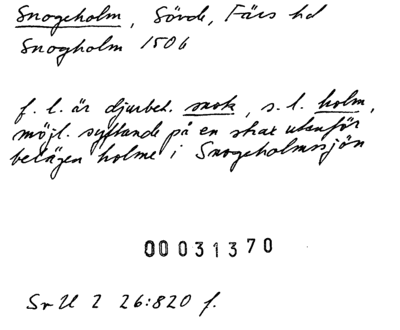 Snogeholm, Sövde, Färs hd
Snogholm 1506
f. l. är djurbet. snok, s. l. holm,
möjl. syftande på en strax utanför
belägen holme i Snogeholmssjön
00031370
Sv U 2 26:820 f.